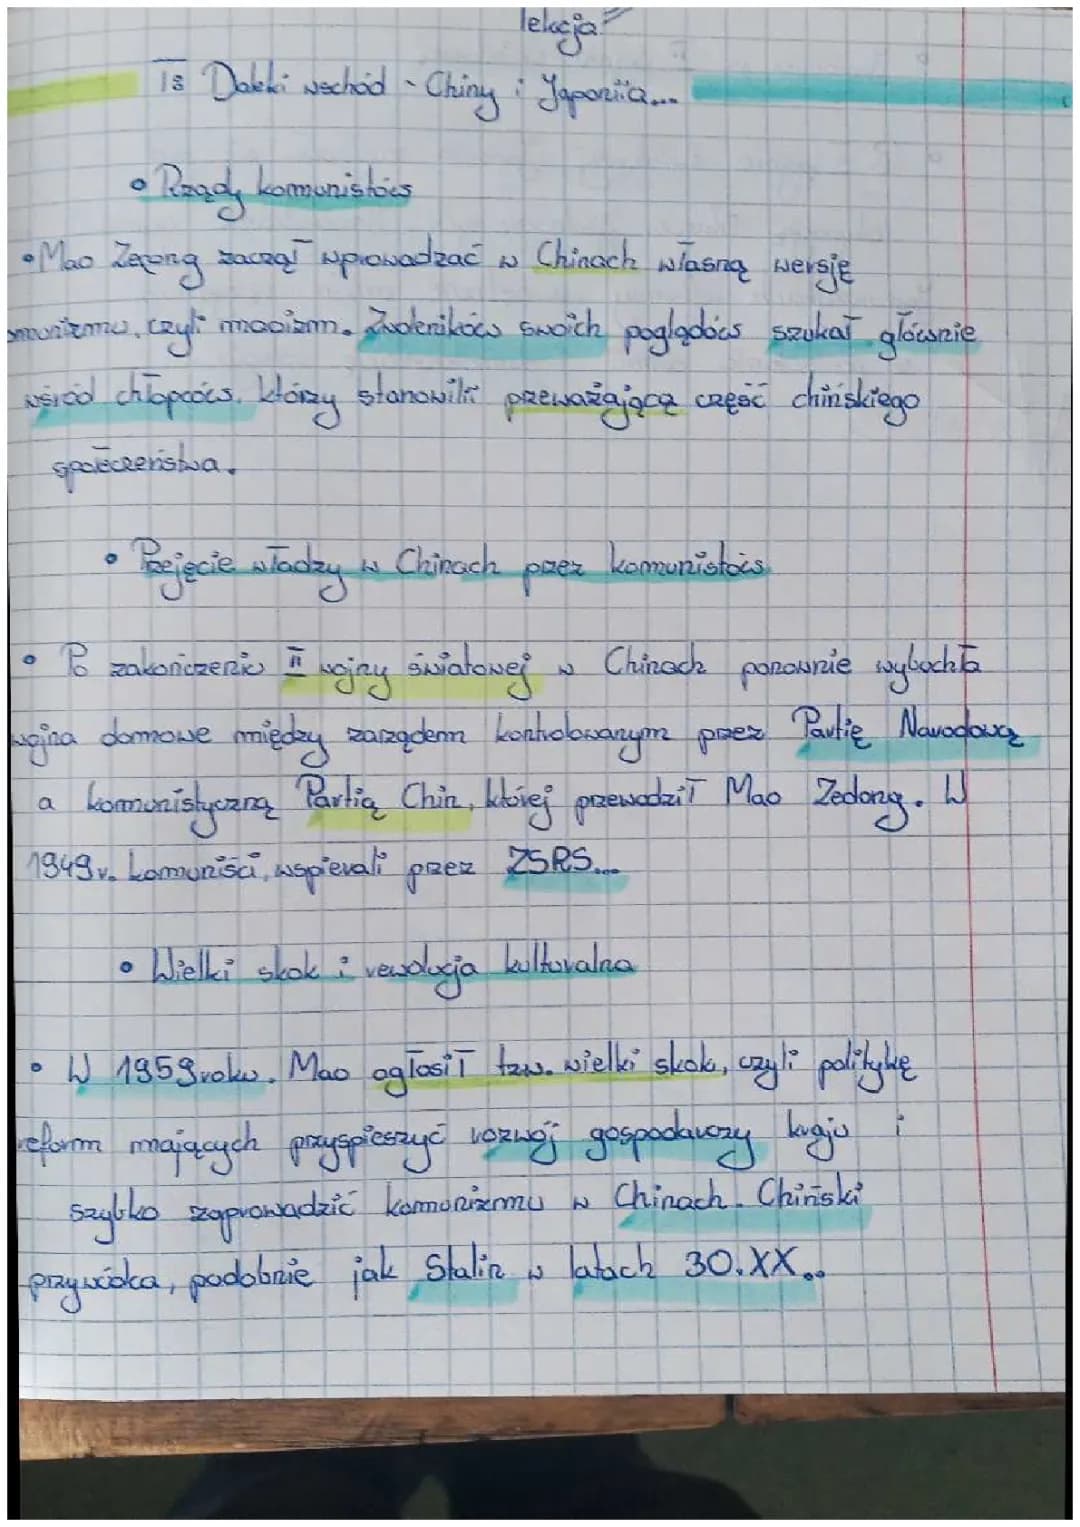 lekcja:
T: Daleki wschód - Chiny i Japoniia...
• Rządy komunistów
• Mao Zeżong zaczął wprowadzać w Chinach własną wersję
omunizmu, czyli maoizm. Zwolenników swoich poglądów szukał głównie
wśród chłopców, którzy stanowili przeważającą część chińskiego
społeczeństwa.
• Przejęcie władzy w Chinach przez komunistów
• Po zakończeniu II wojny światowej w Chinach ponownie wybuchła
wojna domowe między zarządem kontrolowanym przez Partię Narodową
a komunistyczną Partią Chin, której przewodził Mao Zedong. W
1949r. komuniści, wspierali przez ZSRS...
• Wielki skok i rewolucja kulturalna
• W 1959roku. Mao ogłosił tzw. wielki skok, czyli politykę
reform mających przyspieszyć rozwój gospodarczy kraju i
szybko zaprowadzić komunizmu w Chinach. Chiński
przywódca, podobnie jak Stalin w latach 30.XX..